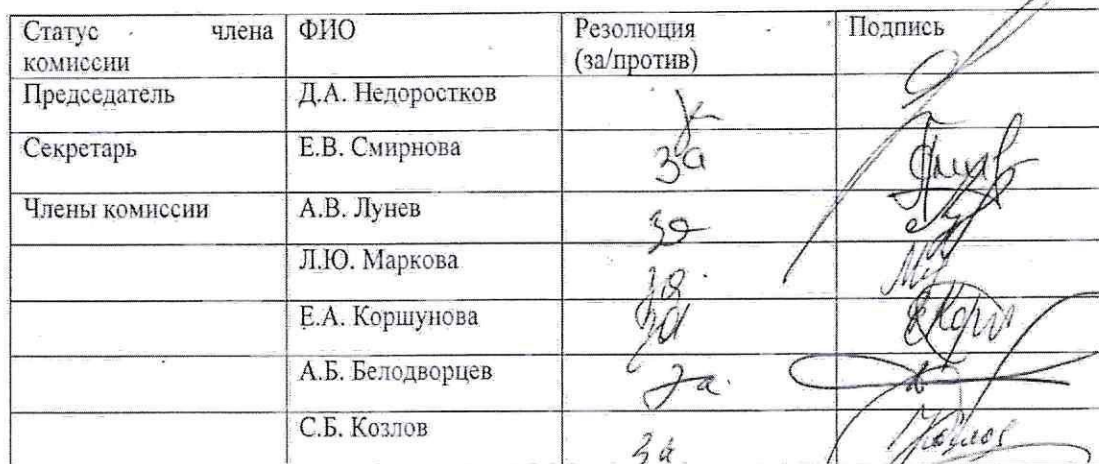 Статус члена комиссии ФИО Резолюция (за/против) Подпись
Председатель Д.А. Недоростков за
Секретарь Е.В. Смирнова за
Члены комиссии А.В. Лунев за
Л.Ю. Маркова за
Е.А. Коршунова за
А.Б. Белодворцев за
С.Б. Козлов за